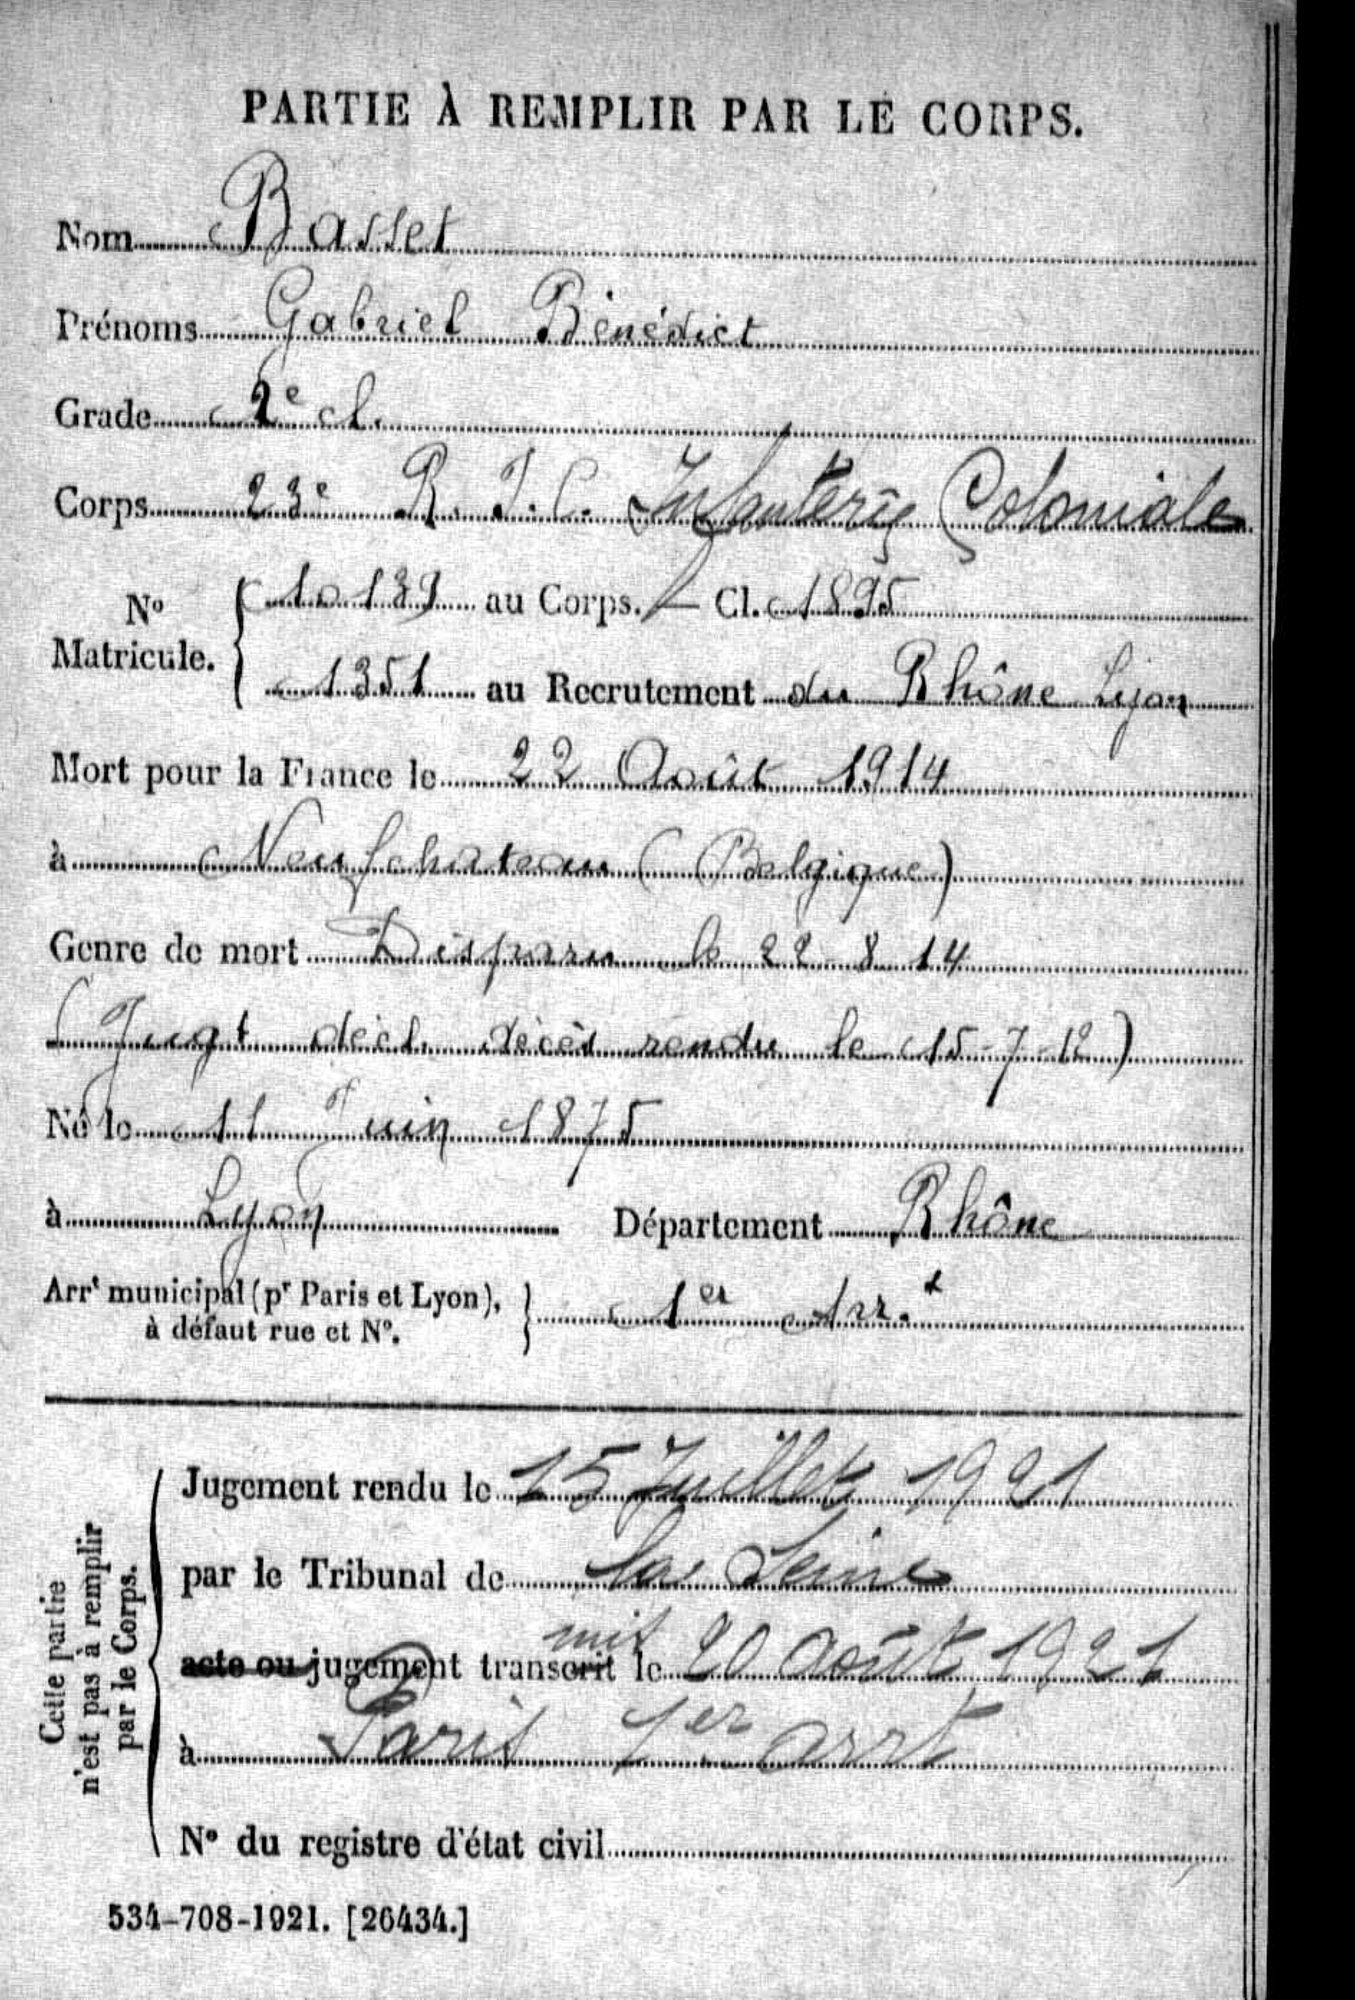 PARTIE À REMPLIR PAR LE CORPS.
Nom Basset
Prénoms Gabriel Bénédict
Grade 2e cl.
Corps 23e R. I. C. Infanterie Coloniale
No Matricule. { 10139 au Corps. — Cl. 1895
1351 au Recrutement du Rhône Lyon
Mort pour la France le 22 Août 1914
à Neufchateau (Belgique)
Genre de mort Disparu le 22-8 14
(Jugt décl. décès rendu le 15-7-12)
Né le 11 Juin 1875
à Lyon Département Rhône
Arrt municipal (pr Paris et Lyon), à défaut rue et No. } 1er Arr.t
Cette partie n'est pas à remplir par le Corps.
Jugement rendu le 15 Juillet 1921
par le Tribunal de la Seine
acte ou jugement transcrit mis le 20 août 1921
à Paris 1er arrt
No du registre d'état civil
534-708-1921. [26434.]